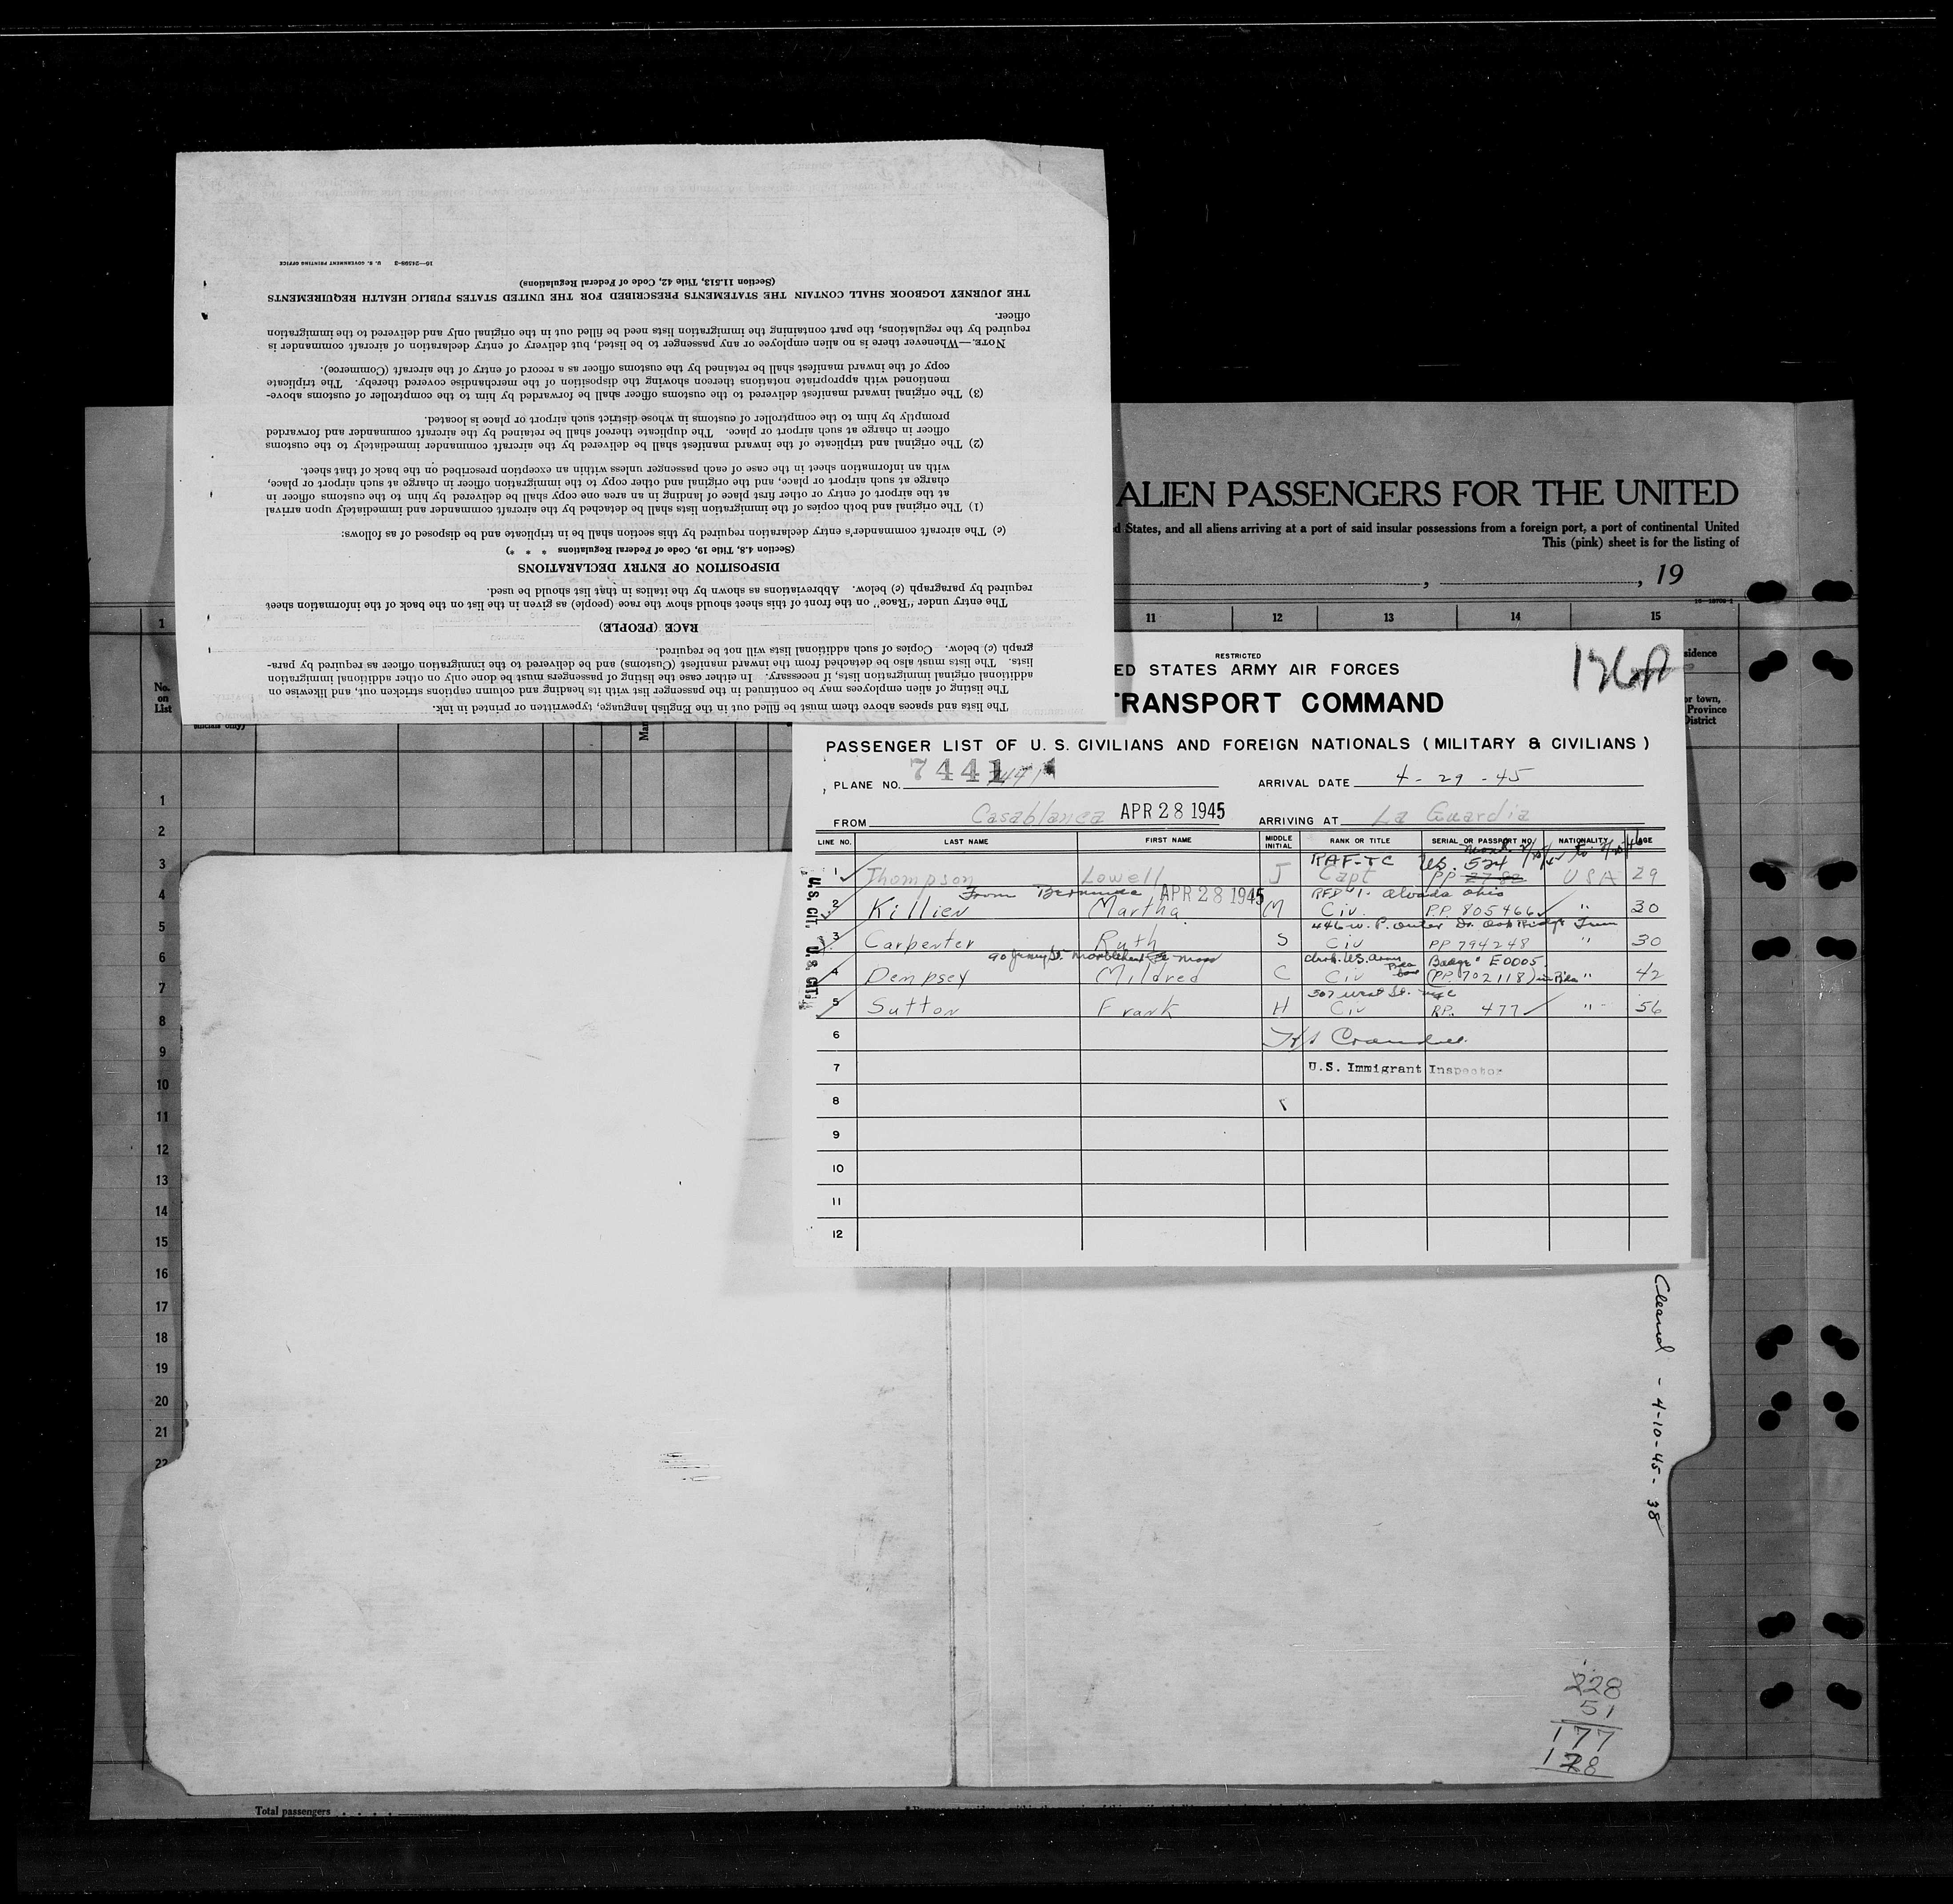 The lists and spaces above them must be filled out in the English language, typewritten or printed in ink.
The listing of alien employees may be continued in the passenger list with its heading and column captions stricken out, and likewise on
additional original immigration lists, if necessary. In either case the listing of passengers must be done only on other additional immigration
lists. The lists must also be detached from the inward manifest (Customs) and be delivered to the immigration officer as required by para-
graph (c) below. Copies of such additional lists will not be required.
RACE (PEOPLE)
The entry under "Race" on the front of this sheet should show the race (people) as given in the list on the back of the information sheet
required by paragraph (c) below. Abbreviations as shown by the italics in that list should be used.
DISPOSITION OF ENTRY DECLARATIONS
(Section 4.8, Title 19, Code of Federal Regulations * * *)
(c) The aircraft commander's entry declaration required by this section shall be in triplicate and be disposed of as follows:
(1) The original and both copies of the immigration lists shall be detached by the aircraft commander and immediately upon arrival
at the airport of entry or other first place of landing in an area one copy shall be delivered by him to the customs officer in
charge at such airport or place, and the original and other copy to the immigration officer in charge at such airport or place,
with an information sheet in the case of each passenger unless within an exception prescribed on the back of that sheet.
(2) The original and triplicate of the inward manifest shall be delivered by the aircraft commander immediately to the customs
officer in charge at such airport or place. The duplicate thereof shall be retained by the aircraft commander and forwarded
promptly by him to the comptroller of customs in whose district such airport or place is located.
(3) The original inward manifest delivered to the customs officer shall be forwarded by him to the comptroller of customs above-
mentioned with appropriate notations thereon showing the disposition of the merchandise covered thereby. The triplicate
copy of the inward manifest shall be retained by the customs officer as a record of entry of the aircraft (Commerce).
NOTE.—Whenever there is no alien employee or any passenger to be listed, but delivery of entry declaration of aircraft commander is
required by the regulations, the part containing the immigration lists need be filled out in the original only and delivered to the immigration
officer.
THE JOURNEY LOGBOOK SHALL CONTAIN THE STATEMENTS PRESCRIBED FOR THE UNITED STATES PUBLIC HEALTH REQUIREMENTS
(Section 11.513, Title 42, Code of Federal Regulations)
16—24598-2 U. S. GOVERNMENT PRINTING OFFICE
ALIEN PASSENGERS FOR THE UNITED
d States, and all aliens arriving at a port of said insular possessions from a foreign port, a port of continental United
This (pink) sheet is for the listing of
, , 19
1 11 12 13 14 15
No. on List
sidence
or town,
Province
District
RESTRICTED
ED STATES ARMY AIR FORCES
TRANSPORT COMMAND
PASSENGER LIST OF U. S. CIVILIANS AND FOREIGN NATIONALS ( MILITARY & CIVILIANS )
PLANE NO. 7441 ARRIVAL DATE 4 - 29 - 45
FROM Casablanca APR 28 1945 ARRIVING AT La Guardia
LINE NO. LAST NAME FIRST NAME MIDDLE INITIAL RANK OR TITLE SERIAL OR PASSPORT NO. NATIONALITY AGE
RAF-TC US. 524
1 Thompson Lowell J Capt PP 2782 USA 29
From Bermuda APR 28 1945 RFD 1. Alvada Ohio
2 Killien Martha M Civ. P.P. 805466 " 30
446 W. P. Outer Dr. Oak Ridge Tenn
3 Carpenter Ruth S Civ PP 794248 " 30
Marblehead Mass U.S. Army Badge E0005
4 Dempsey Mildred C Civ (PP. 702118) " 42
507 West St. NYC
5 Sutton Frank H Civ PP. 477 " 56
6
7 U.S. Immigrant Inspector
8
9
10
11
12
U.S. CIT.
U.S. CIT.
1
2
3
4
5
6
7
8
9
10
11
12
13
14
15
16
17
18
19
20
21
22
Cleared - 4-10-45- 38
228
51
177
128
Total passengers